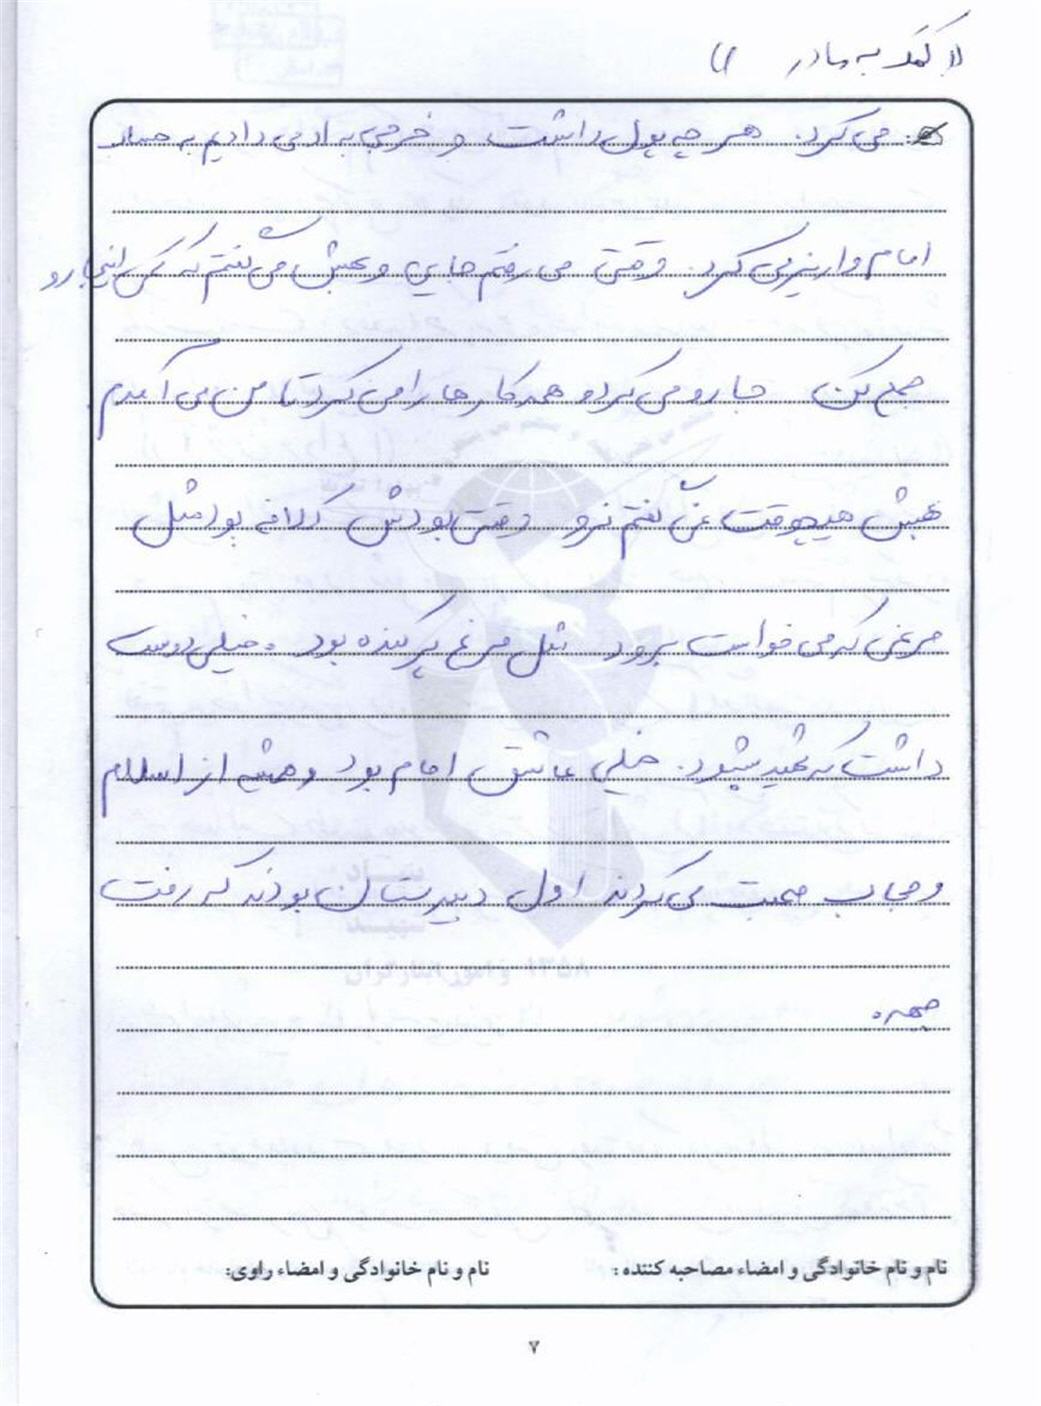 (( کمک به مادر ))
می کرد. هر چه پول داشت و خرجی به او می دادیم به حساب
امام واریز می کرد. وقتی می رفتم جایی و بهش می گفتم که کمی اینجا رو
جمع کن جارو می کرد و همه کارها را می کرد تا من می آمدم.
بهش هیچوقت نمی گفتم نرو وقتی بودش کلافه بود مثل
مرغی که می خواست برود مثل مرغ پرکنده بود. خیلی دوست
داشت که شهید بشود. خیلی عاشق امام بود و همیشه از اسلام
و حجاب صحبت می کردند اول دبیرستان بودند که رفت
جبهه.
نام و نام خانوادگی و امضاء مصاحبه کننده: نام و نام خانوادگی و امضاء راوی:
۷